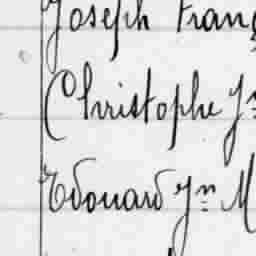 Joseph Franç
Christophe Jn
Edouard Jn M